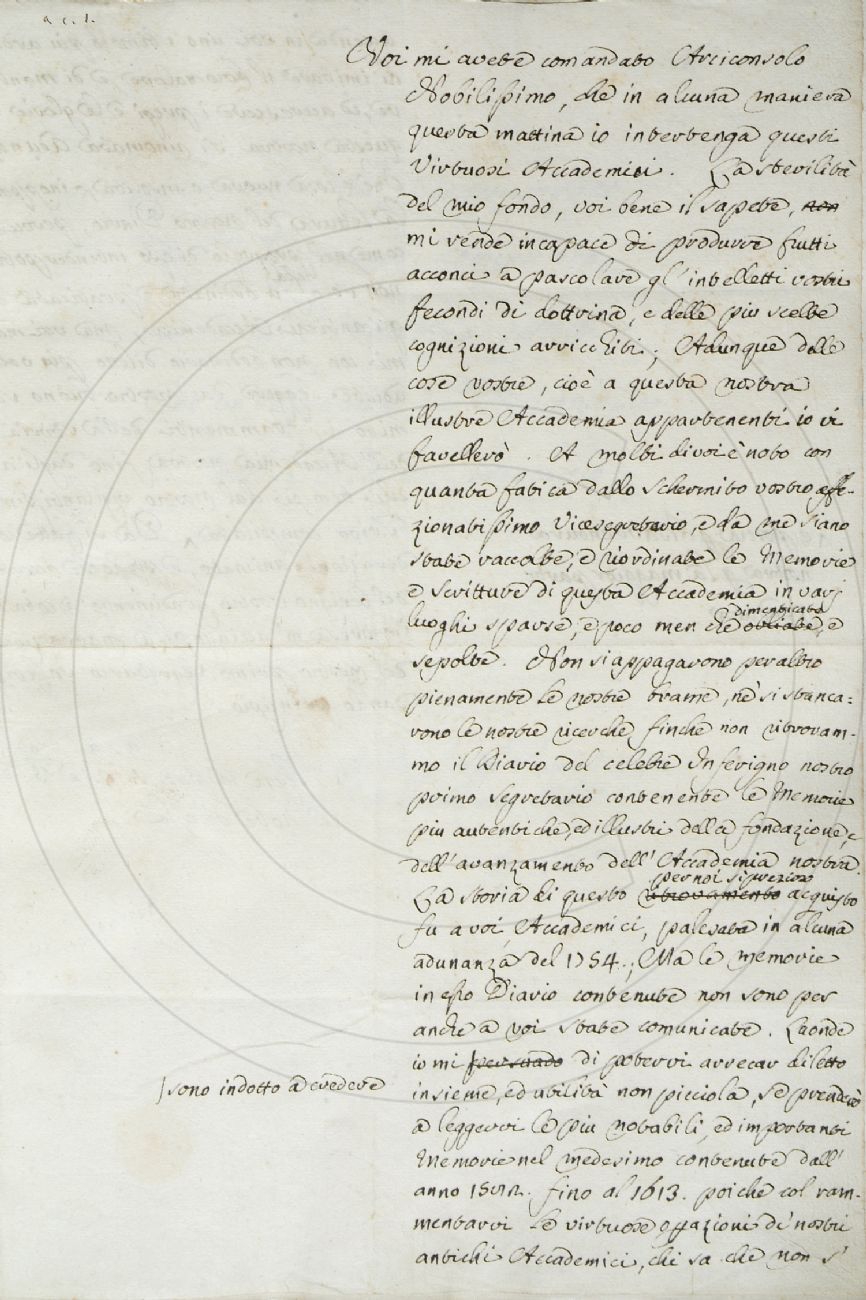 a c. 1.
Voi mi avete comandato Arciconsolo
Nobilissimo, che in alcuna maniera
questa mattina io intertenga questi
Virtuosi Accademici. La sterilità
del mio fondo, voi bene il sapete, non
mi rende incapace di produrre frutti
acconci a pascolare gl'intelletti vostri
fecondi di dottrina, e delle più scelte
cognizioni arricchiti; Adunque delle
cose vostre, cioè a questa nostra
illustre Accademia appartenenti io vi
favellerò. A molti di voi è noto con
quanta fatica dallo Schermito vostro affe-
zionatissimo Vicesegretario, e da me siano
state raccolte, e riordinate le Memorie
e scritture di questa Accademia in varj
dimenticate
luoghi sparse, e poco men che obliate, e
sepolte. Non si appagarono peraltro
pienamente le nostre brame, nè si stanca=
rono le nostre ricerche finche non ritrovam-
mo il Diario del celebre Inferigno nostro
primo segretario contenente le Memorie
più autentiche, ed illustri della fondazione, e
dell'avanzamento dell'Accademia nostra.
per noi sì prezioso
La storia di questo ritrovamento acquisto
fu a voi, Accademici, palesata in alcuna
adunanza del 1754.; Ma le memorie
in esso Diario contenute non sono per
anche a voi state comunicate. Laonde
io mi persuado di potervi arrecar diletto
sono indotto a credere
insieme, ed utilità non picciola, se prenderò
a leggervi le più notabili, ed importanti
Memorie nel medesimo contenute dall'
anno fino al 1613. poichè col ram-
mentarvi le virtuose operazioni de' nostri
antichi Accademici, chi sa che non s'